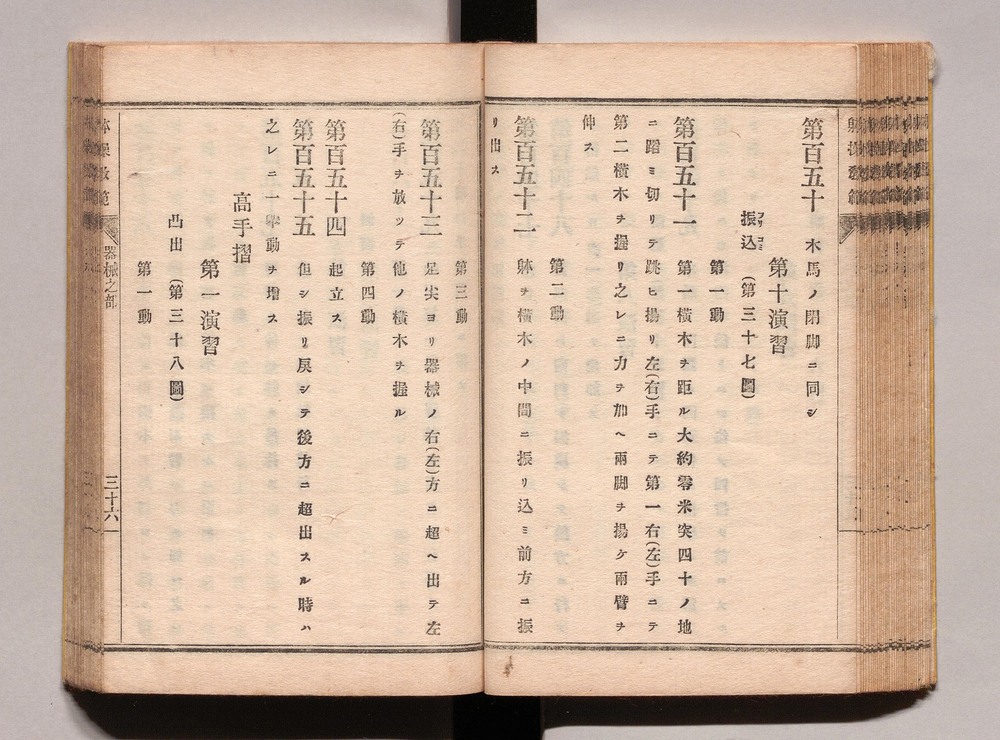 第百五十 木馬ノ閉脚ニ同シ
第十演習
振込 (第三十七圖)
第一動
第百五十一 第一橫木ヲ距ル大約零米突四十ノ地
ニ蹈ミ切リテ跳ヒ揚リ左(右)手ニテ第一右(左)手ニテ
第二橫木ヲ握リ之レニ力ヲ加ヘ兩脚ヲ揚ケ兩臂ヲ
伸ス
第二動
第百五十二 躰ヲ橫木ノ中間ニ振リ込ミ前方ニ振
リ出ス
第三動
第百五十三 足尖ヨリ器械ノ右(左)方ニ超ヘ出テ左
(右)手ヲ放ッテ他ノ橫木ヲ握ル
第四動
第百五十四 起立ス
第百五十五 但シ振リ戾シテ後方ニ超出スル時ハ
之レニ一擧動ヲ增ス
高手摺
第一演習
凸出 (第三十八圖)
第一動
器械之部
三十六